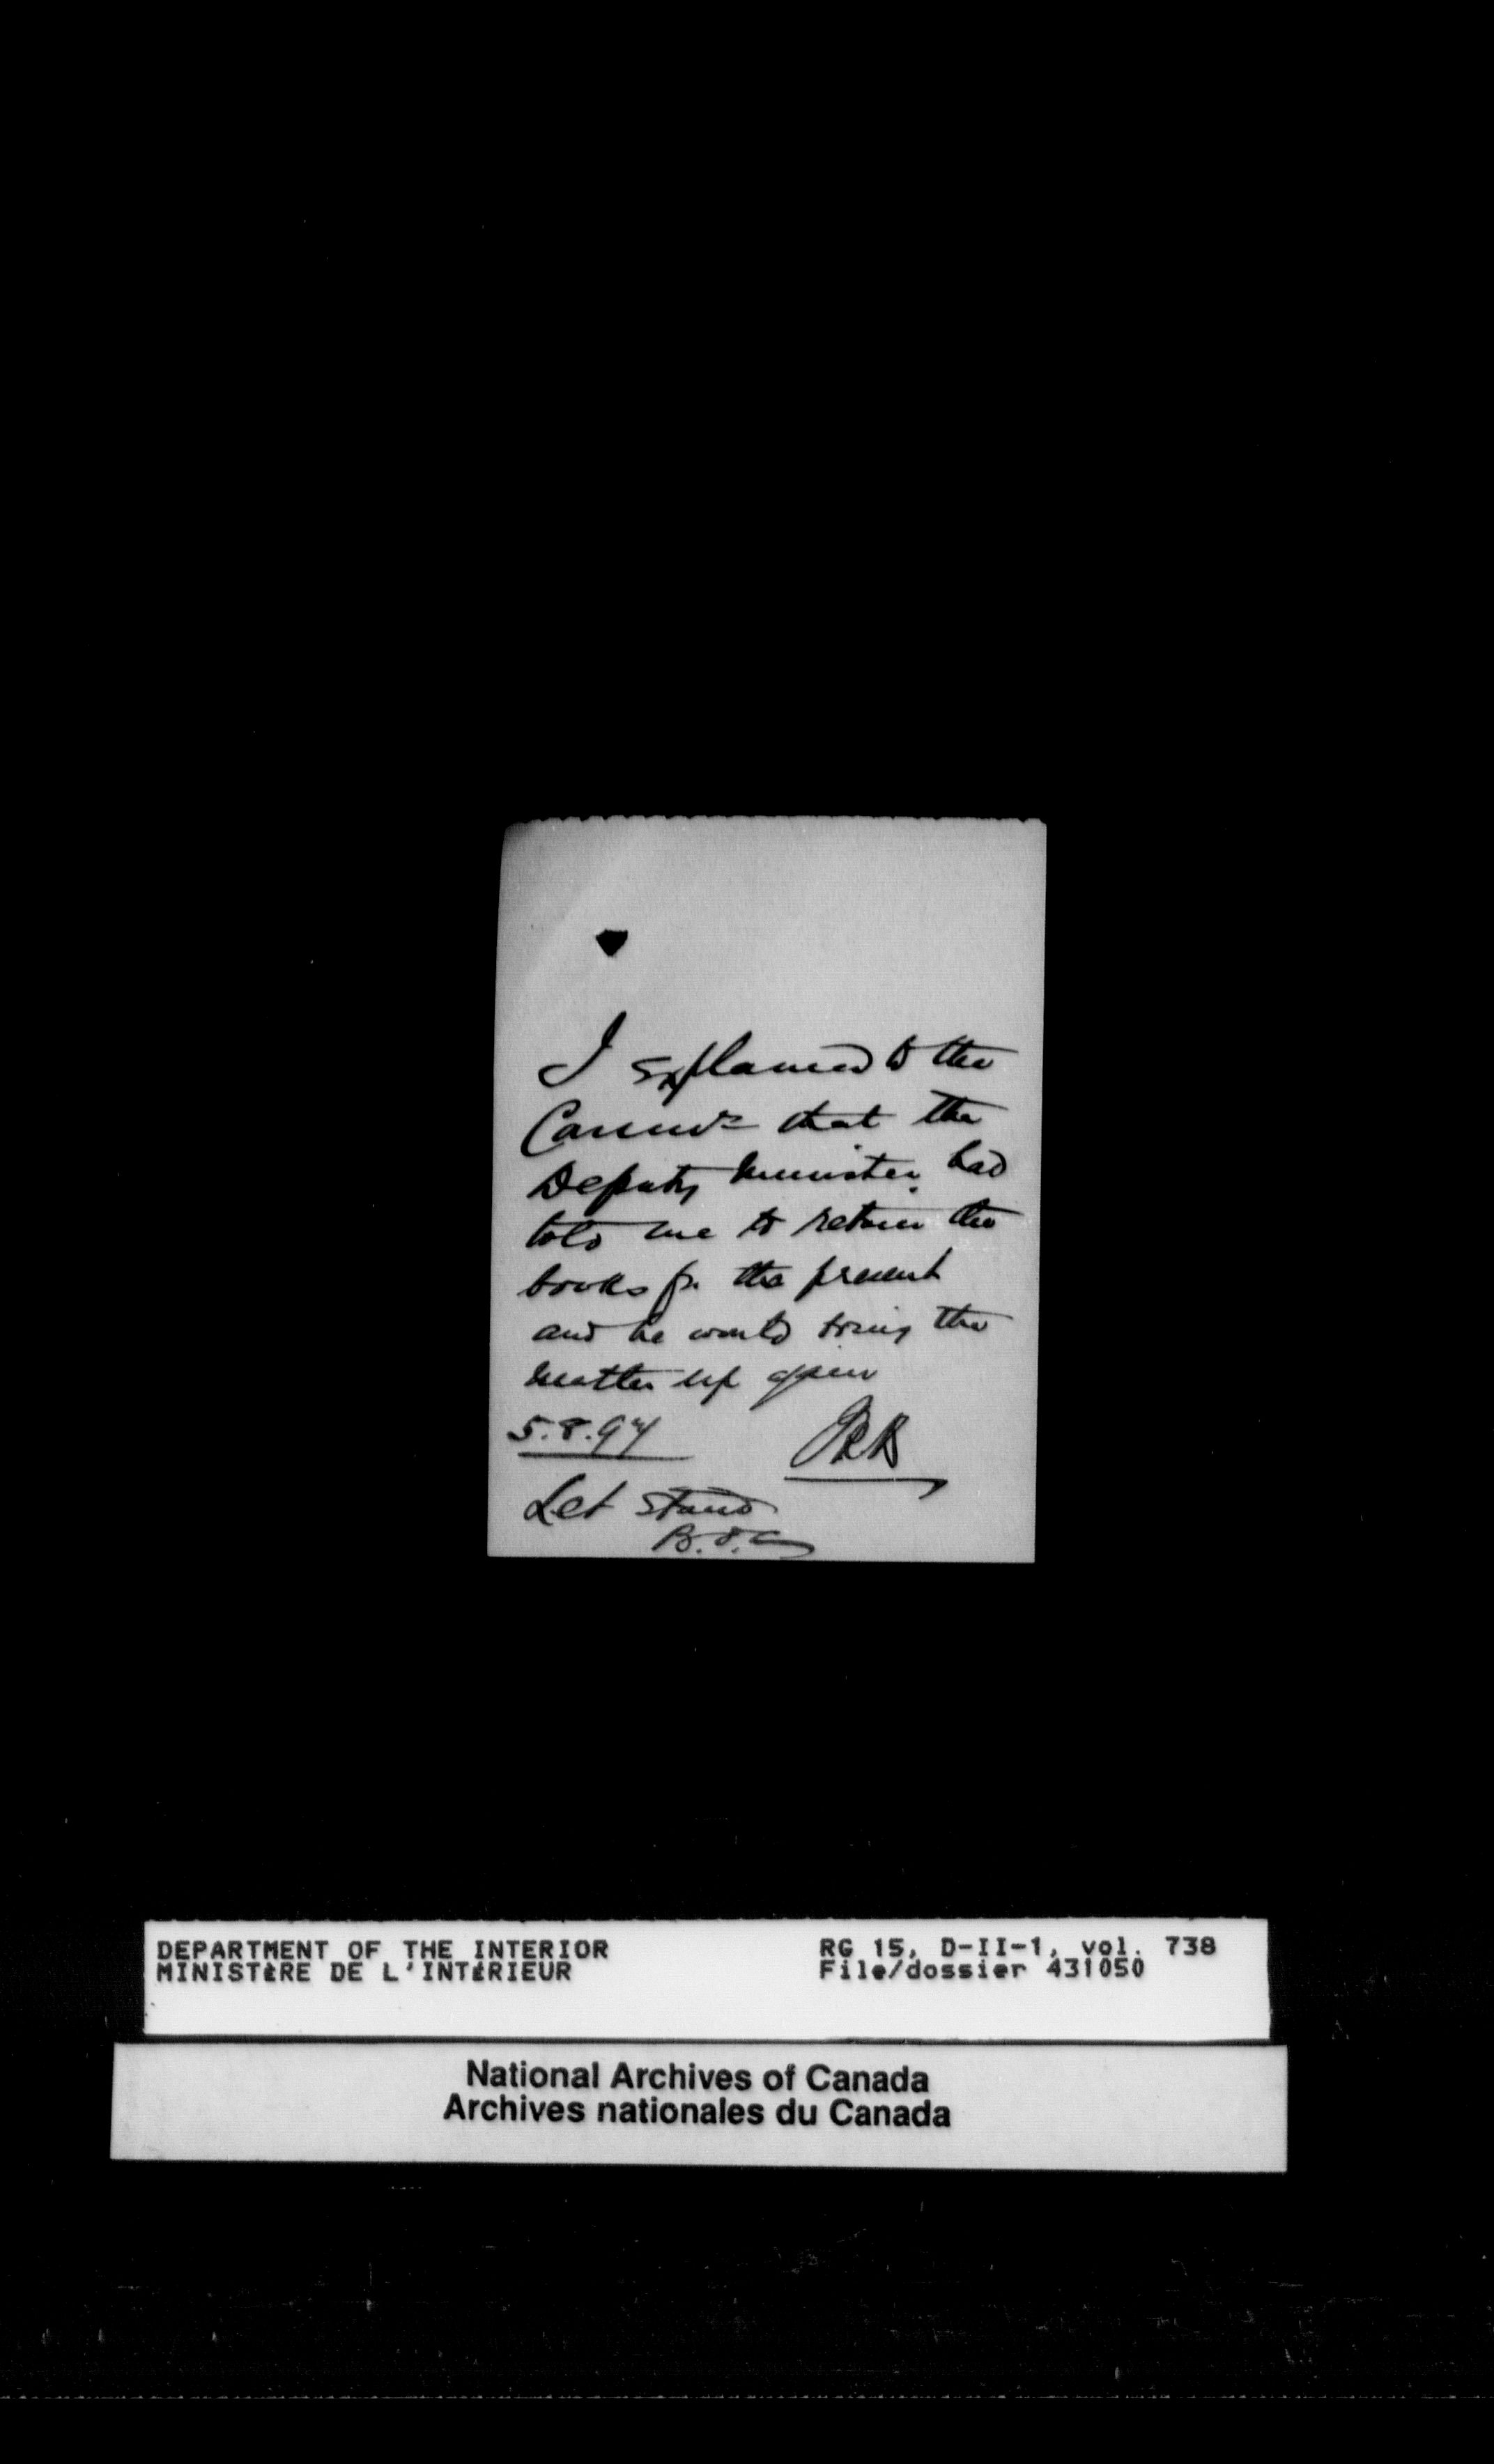 I explained to the
Commr that the
Deputy Minister had
told me to retain the
books for the present
and he would bring the
matter up again
5.8.94
Let stand
DEPARTMENT OF THE INTERIOR
MINISTÈRE DE L'INTÉRIEUR
RG 15, D-II-1, vol. 738
File/dossier 431050
National Archives of Canada
Archives nationales du Canada